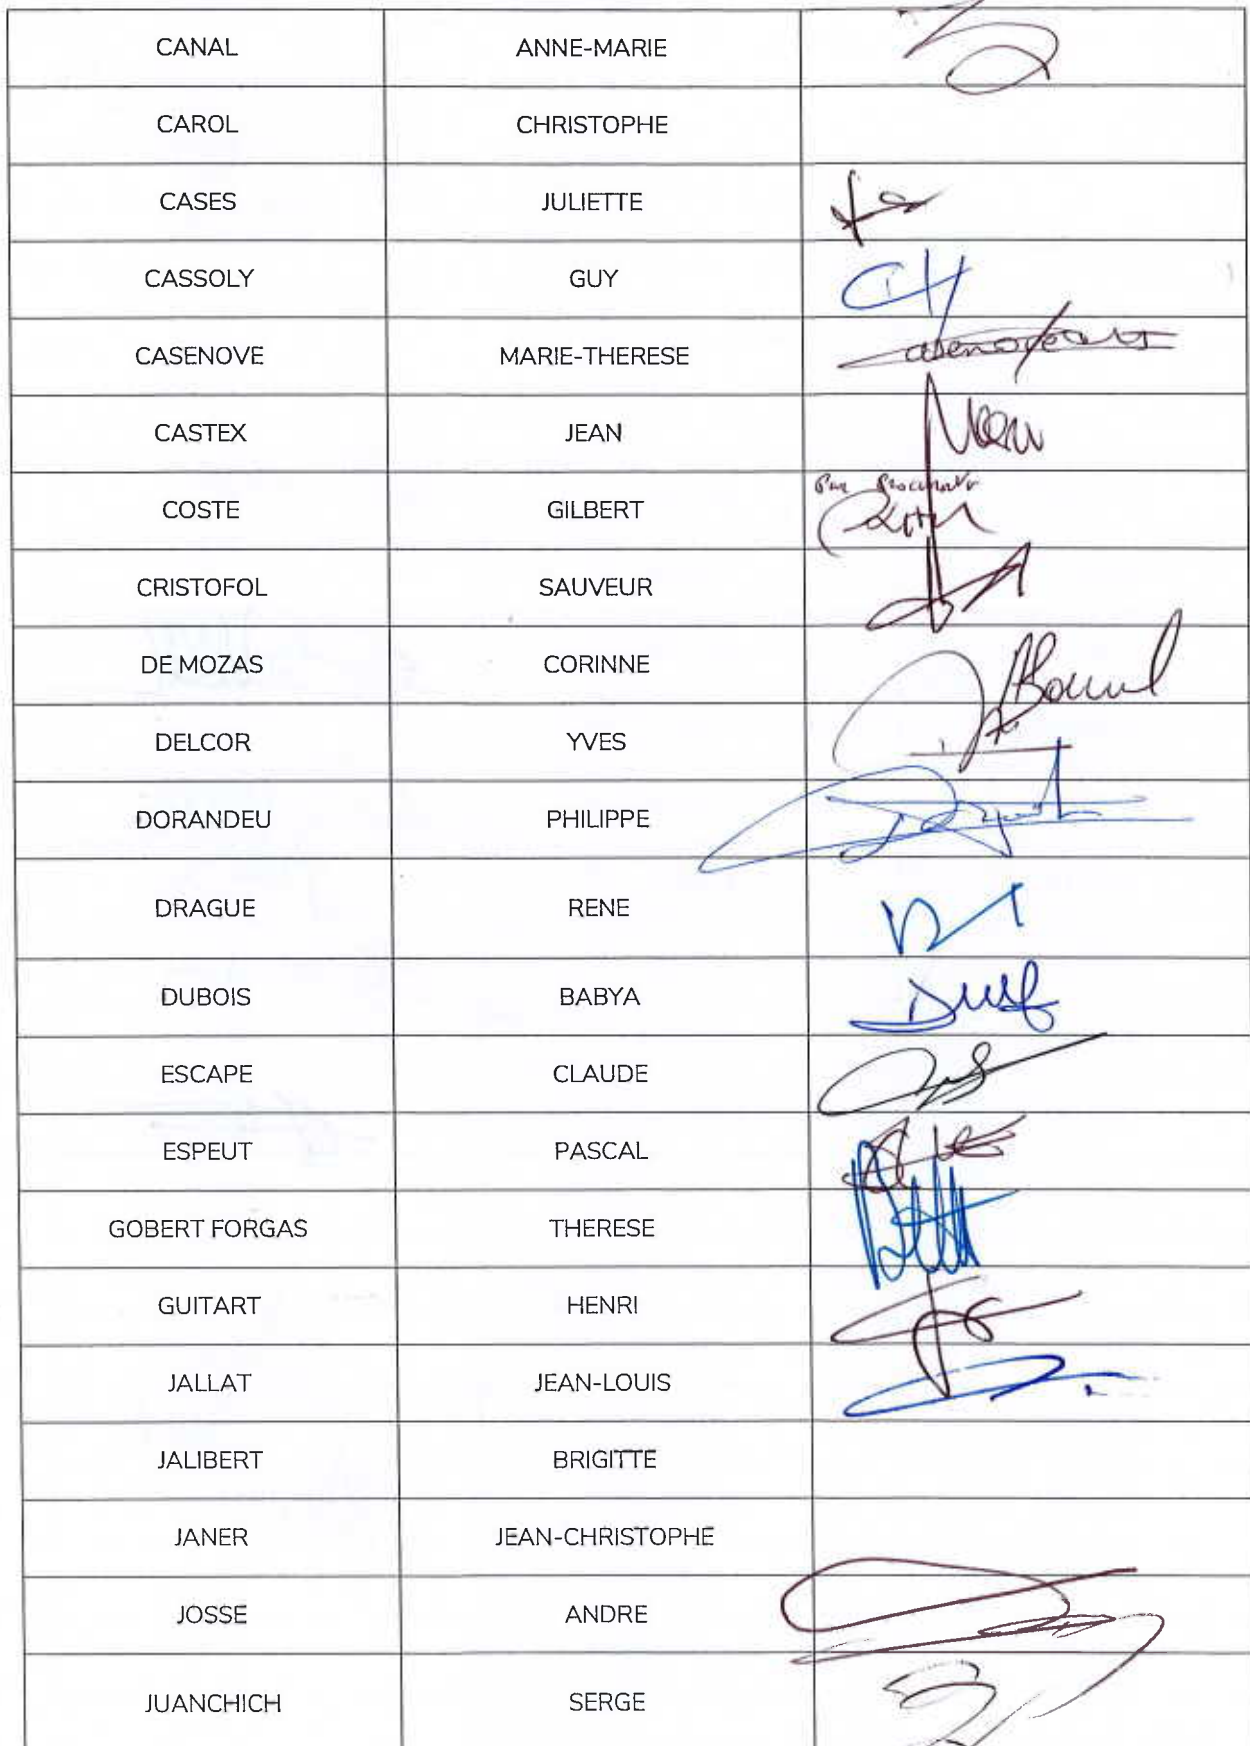 CANAL ANNE-MARIE
CAROL CHRISTOPHE
CASES JULIETTE
CASSOLY GUY
CASENOVE MARIE-THERESE
CASTEX JEAN
COSTE GILBERT
CRISTOFOL SAUVEUR
DE MOZAS CORINNE
DELCOR YVES
DORANDEU PHILIPPE
DRAGUE RENE
DUBOIS BABYA
ESCAPE CLAUDE
ESPEUT PASCAL
GOBERT FORGAS THERESE
GUITART HENRI
JALLAT JEAN-LOUIS
JALIBERT BRIGITTE
JANER JEAN-CHRISTOPHE
JOSSE ANDRE
JUANCHICH SERGE